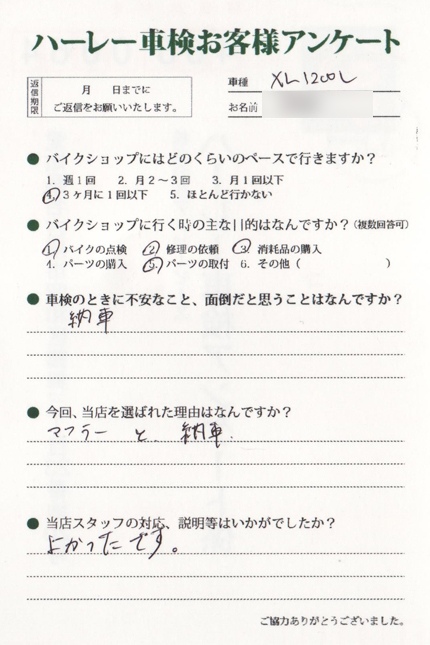 ハーレー車検お客様アンケート
返信期限
月　　日までに
ご返信をお願いいたします。
車種 XL1200L
お名前
● バイクショップにはどのくらいのペースで行きますか？
1. 週1回　2. 月2〜3回　3. 月1回以下
4. 3ヶ月に1回以下　5. ほとんど行かない
● バイクショップに行く時の主な目的はなんですか？（複数回答可）
1. バイクの点検　2. 修理の依頼　3. 消耗品の購入
4. パーツの購入　5. パーツの取付　6. その他（　　　　　　）
● 車検のときに不安なこと、面倒だと思うことはなんですか？
納車
● 今回、当店を選ばれた理由はなんですか？
マフラー と、納車.
● 当店スタッフの対応、説明等はいかがでしたか？
よかったです。
ご協力ありがとうございました。